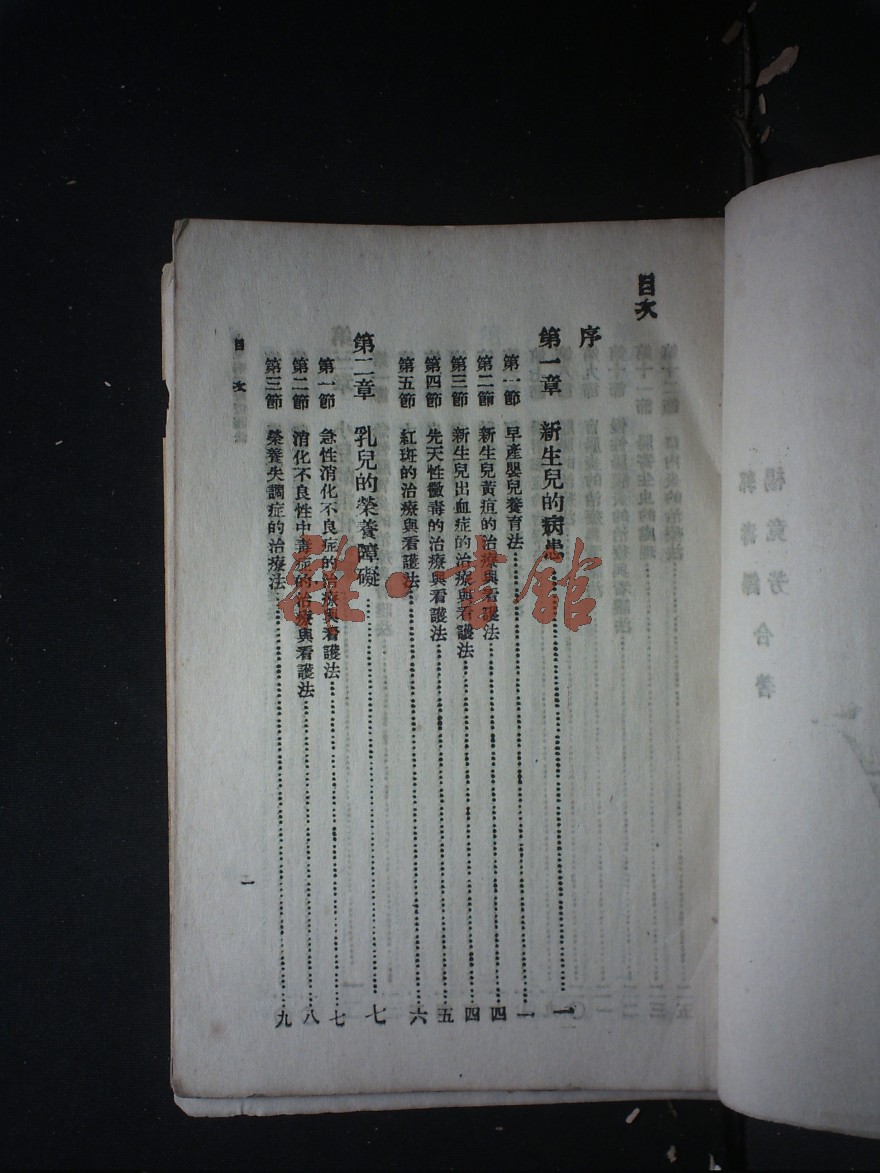 目次
序
第一章 新生兒的病患……一
第一節 早產嬰兒養育法……一
第二節 新生兒黃疸的治療與看護法……四
第三節 新生兒出血症的治療與看護法……四
第四節 先天性黴毒的治療與看護法……五
第五節 紅斑的治療與看護法……六
第二章 乳兒的榮養障礙……七
第一節 急性消化不良症的治療與看護法……七
第二節 消化不良性中毒症的治療與看護法……八
第三節 榮養失調症的治療法……九
目次
一